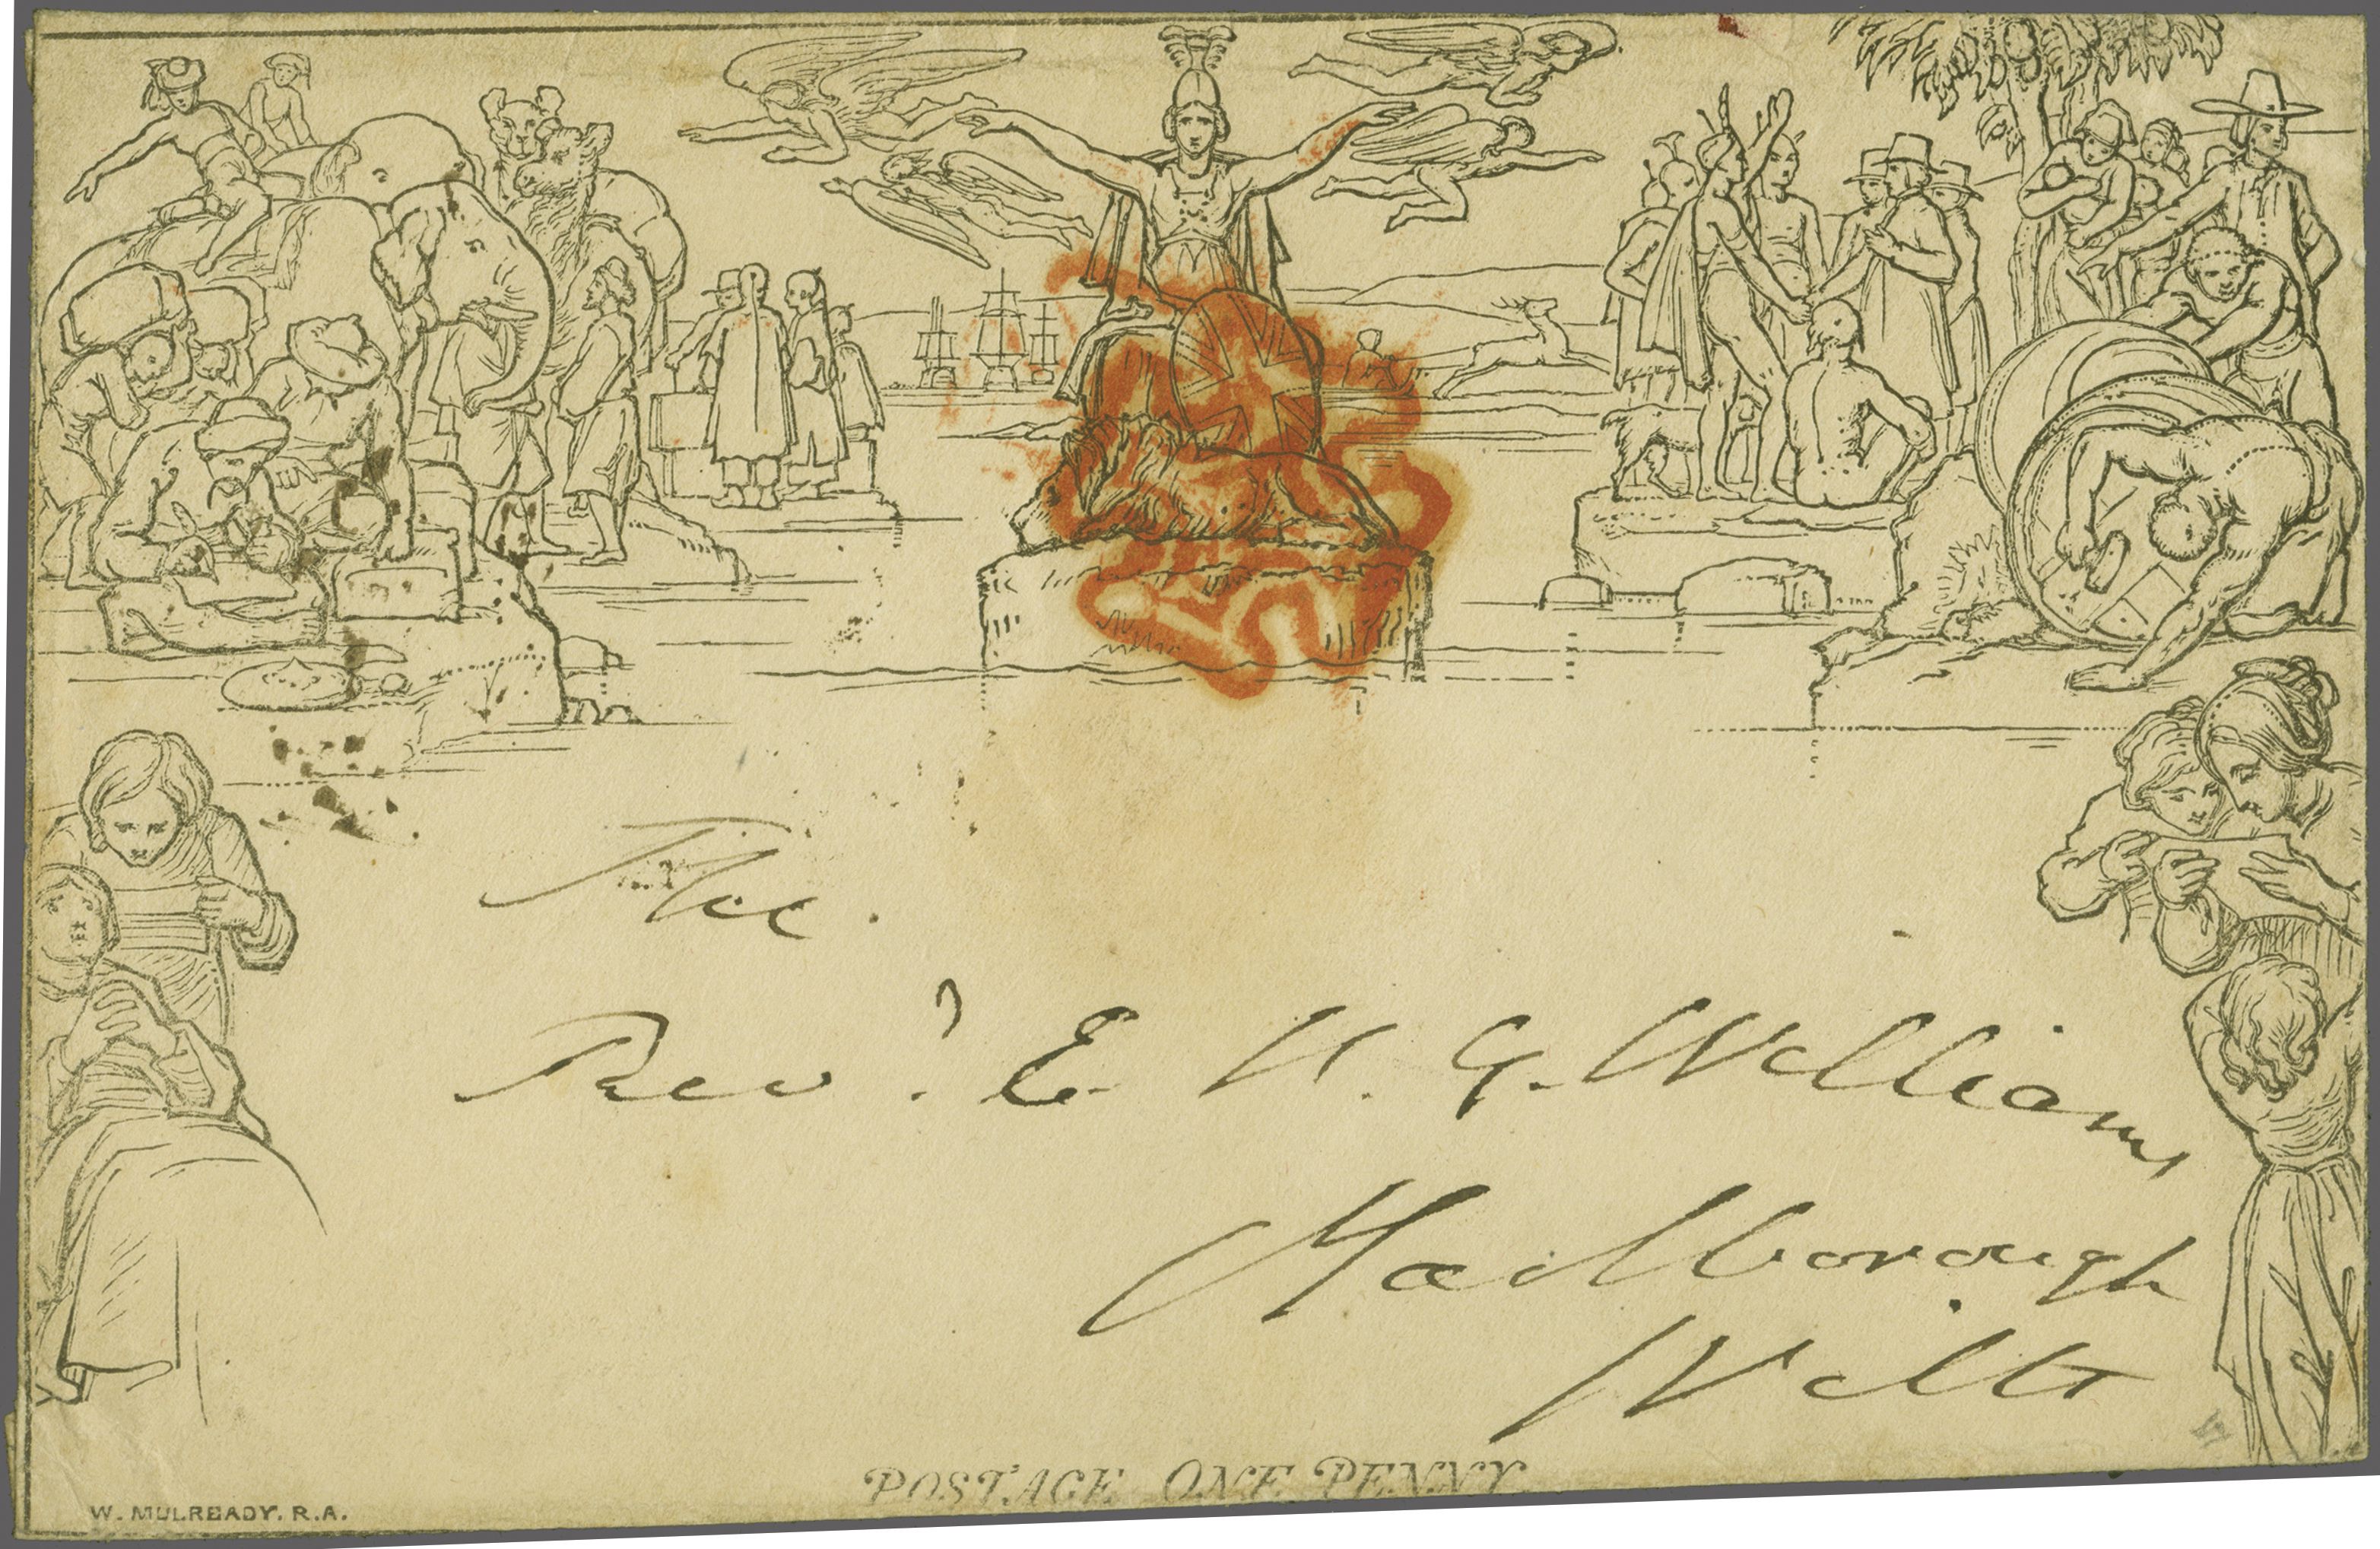 The.
Revd. E. W. G. Williams
Marlborough
Wilts
POSTAGE ONE PENNY.
W. MULREADY. R.A.